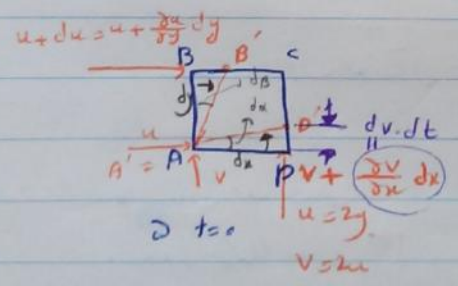 u + du = u + ∂u/∂y dy
B B' C
dy dβ
dα
u D' dv.dt
A' = A dx D V + ∂V/∂x dx
V
t=0 u = 2y
V = 2x